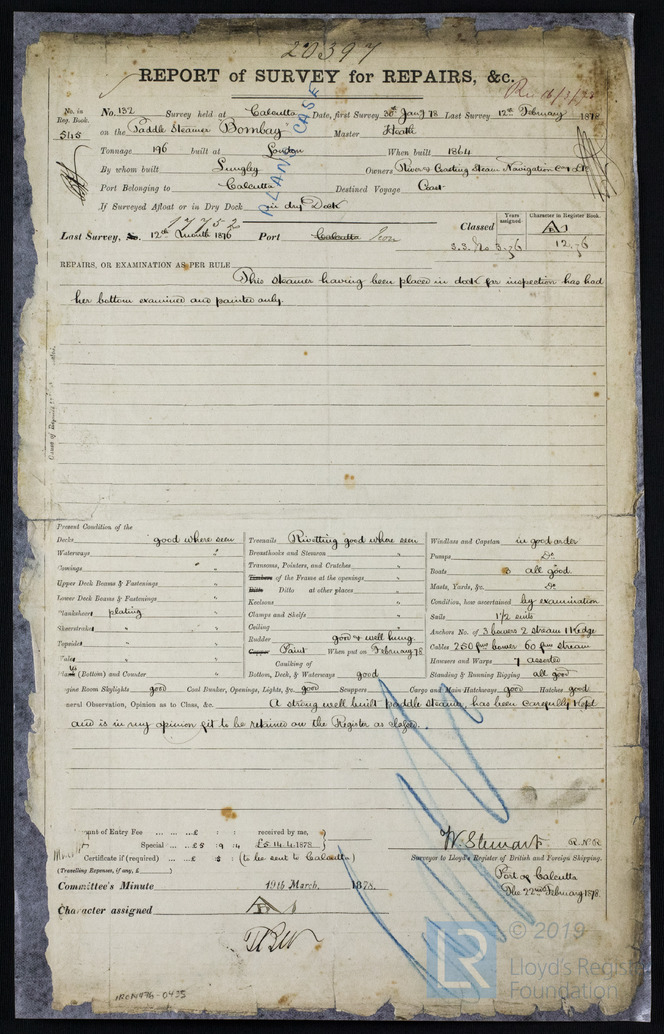 20397
REPORT of SURVEY for REPAIRS, &c.
No. in Reg. Book. No. 132 Survey held at Calcutta Date, first Survey 30th Jany 78 Last Survey 12th February 1878
545 on the Paddle Steamer Bombay Master Heath
Tonnage 196 built at London When built 1864
By whom built Lungley Owners River & Coasting Steam Navigation
Port Belonging to Calcutta Destined Voyage Coast
If Surveyed Afloat or in Dry Dock in dry Dock
17752
Last Survey, No. 12th Month 1876 Port Calcutta Iron Classed Years assigned Character in Register Book.
A 1
12.76
REPAIRS, OR EXAMINATION AS PER RULE
This steamer having been placed in dock for inspection has had
her bottom examined and painted only.
Present Condition of the
Decks good where seen Treenails Rivetting good where seen Windlass and Capstan in good order
Waterways " Breasthooks and Stemson " Pumps Do
Comings " Transoms, Pointers, and Crutches " Boats 3 all good
Upper Deck Beams & Fastenings " Timbers of the Frame at the openings " Masts, Yards, &c. Do
Lower Deck Beams & Fastenings " Ditto Ditto at other places " Condition, how ascertained by examination
Plankshears plating " Keelsons " Sails 1 1/2 suits
Sheerstrakes " Clamps and Shelfs " Anchors No. of 3 bowers 2 stream 1 Kedge
Topsides " Ceiling " Cables 250 fms bower 60 fms stream
Wales " Rudder good & well hung Hawsers and Warps 7 assorted
(Bottom) and Counter " Copper Paint When put on February 78 Standing & Running Rigging all good
Caulking of
Bottom, Deck, & Waterways good
gine Room Skylights good Coal Bunker, Openings, Lights, &c. good Scuppers " Cargo and Main Hatchways good Hatches good
neral Observation, Opinion as to Class, &c. A strong well built paddle steamer, has been carefully kept
and is in my opinion fit to be retained on the Register as classed.
unt of Entry Fee ... ... £ : : received by me,
Special ... ... £5 £5 14.4.1878
Certificate (if required) ... £ : : (to be sent to Calcutta)
(Travelling Expenses, if any, £ )
W. Stewart R.N.R
Surveyor to Lloyd's Register of British and Foreign Shipping.
Port of Calcutta
The 22nd February 1878.
Committee's Minute 19th March, 1878.
Character assigned A 1
IRON476-0435
LR © 2019
Lloyd's Regist
Foundation